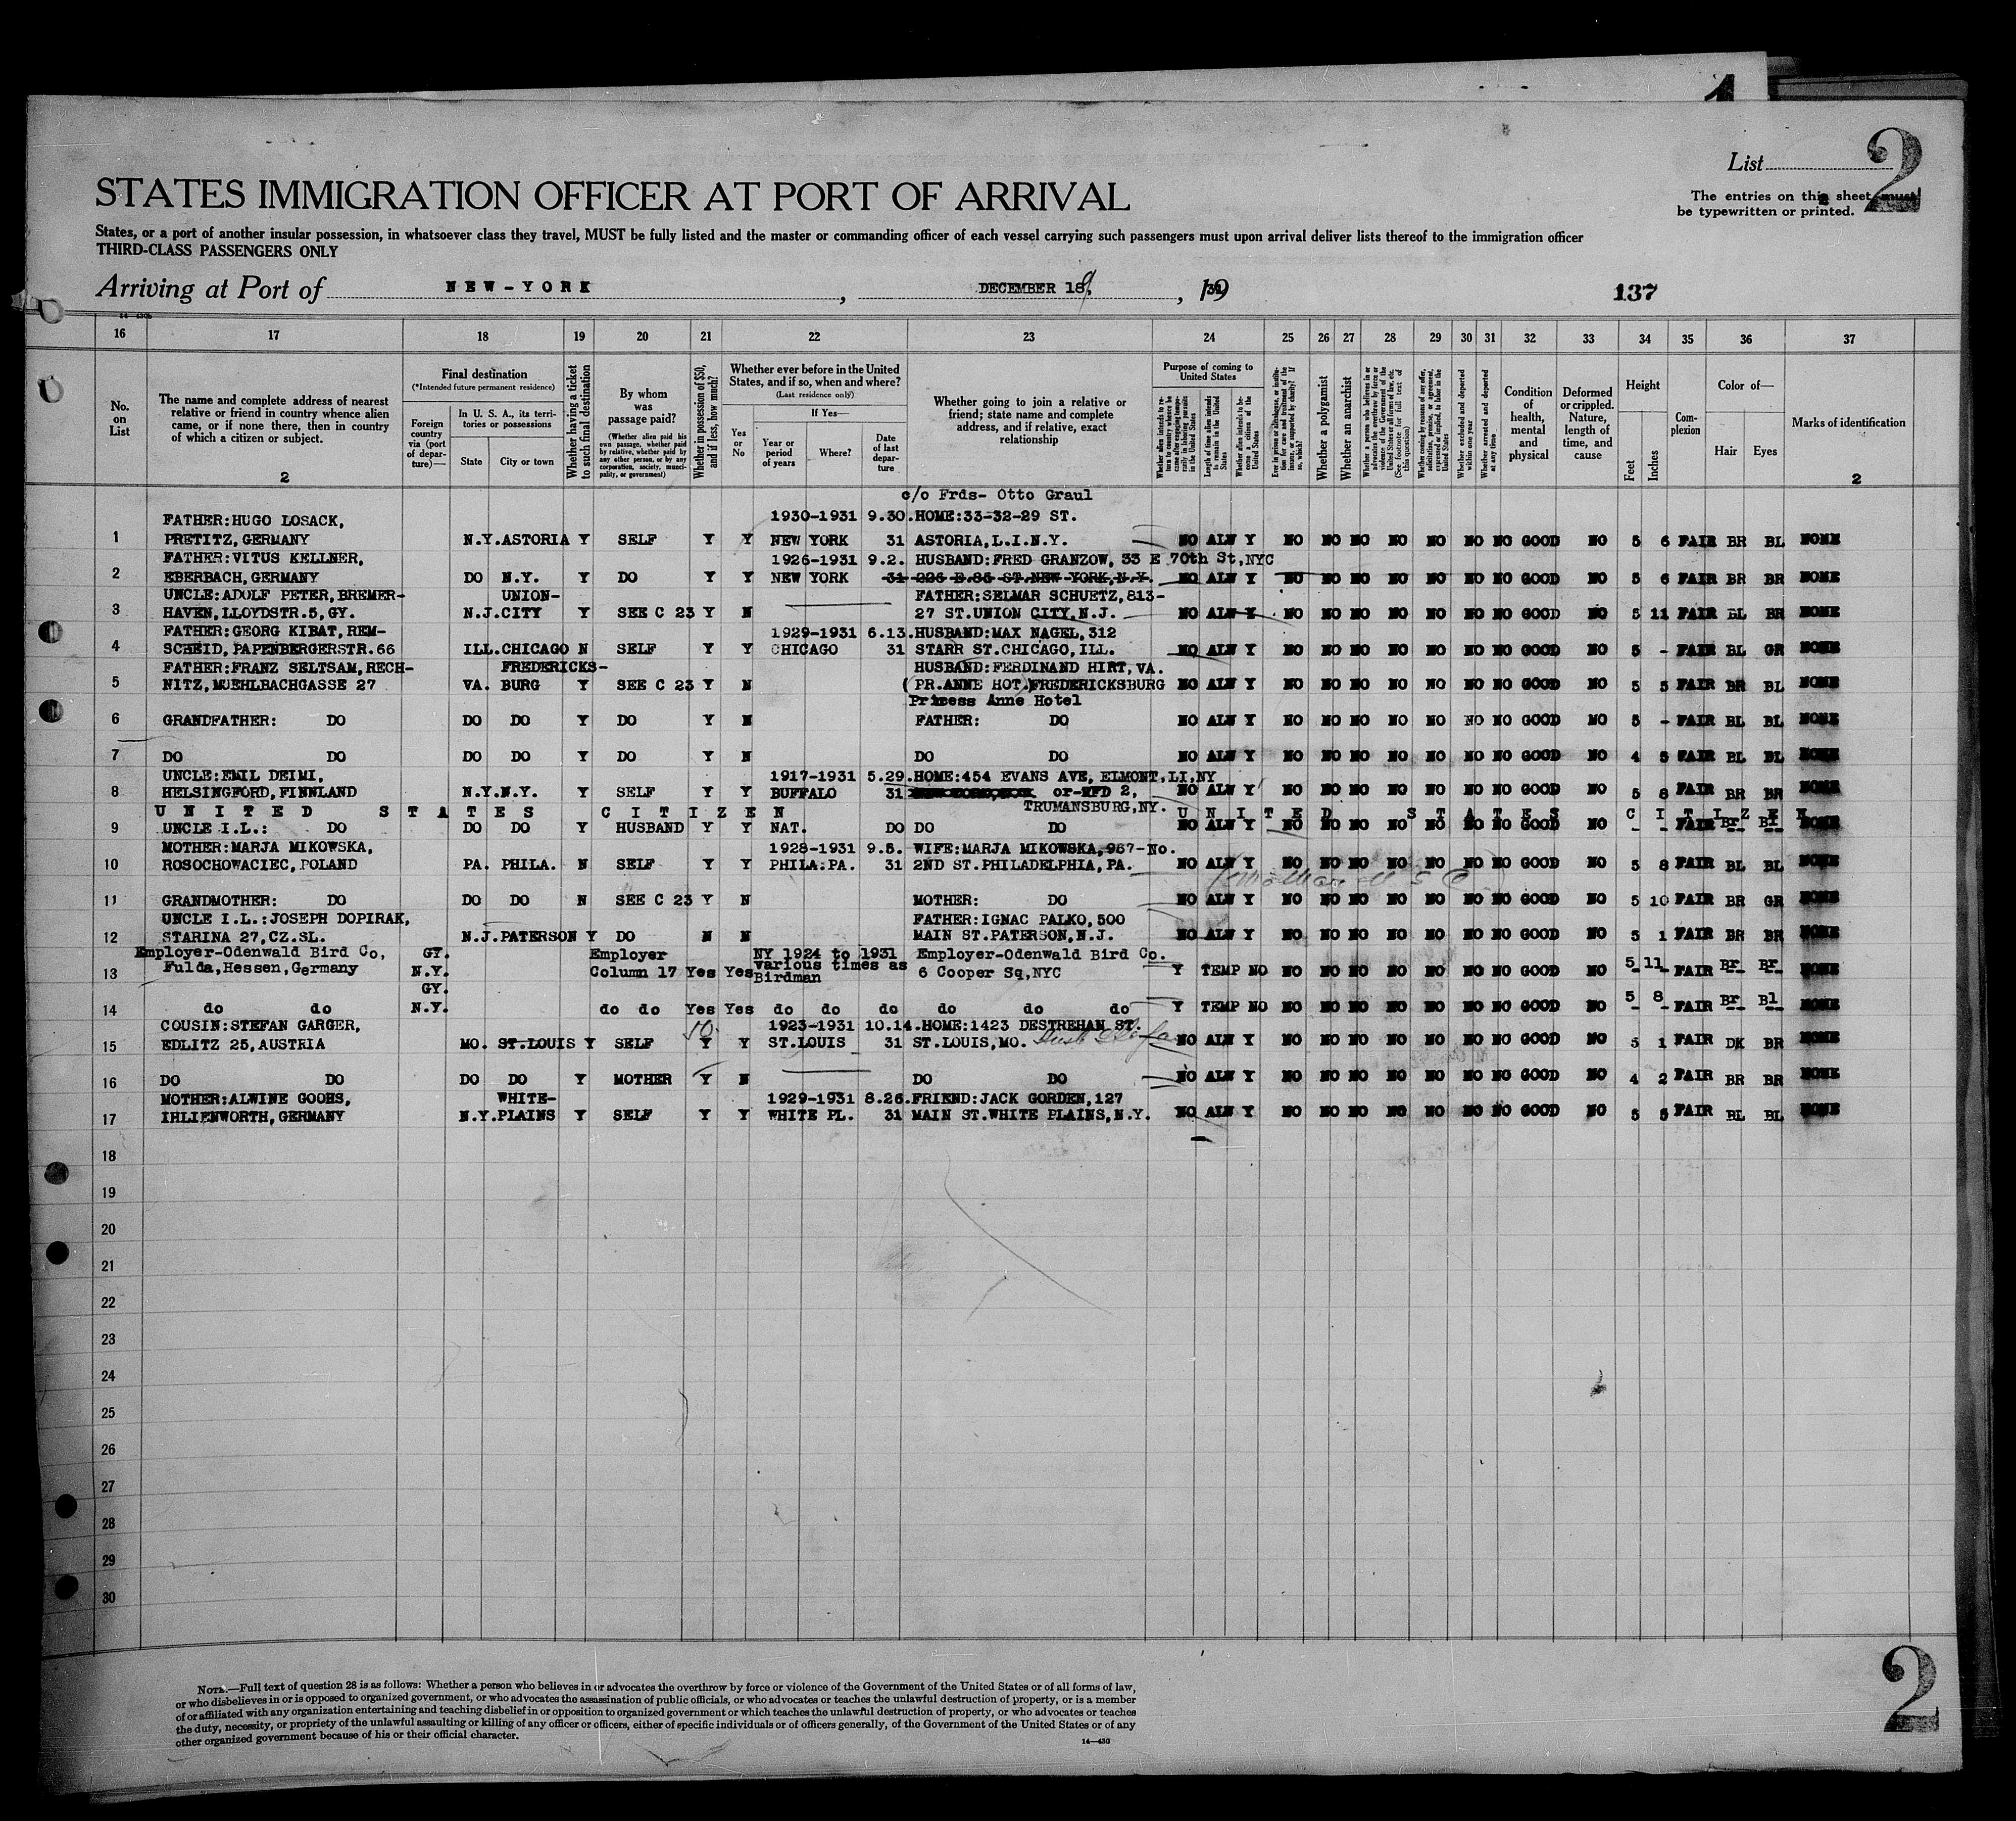 List 2
The entries on this sheet must
be typewritten or printed.
STATES IMMIGRATION OFFICER AT PORT OF ARRIVAL
States, or a port of another insular possession, in whatsoever class they travel, MUST be fully listed and the master or commanding officer of each vessel carrying such passengers must upon arrival deliver lists thereof to the immigration officer
THIRD-CLASS PASSENGERS ONLY
Arriving at Port of NEW-YORK, DECEMBER 18, 1931
137
16 17 18 19 20 21 22 23 24 25 26 27 28 29 30 31 32 33 34 35 36 37
No. on List
The name and complete address of nearest relative or friend in country whence alien came, or if none there, then in country of which a citizen or subject.
2
Final destination
(*Intended future permanent residence)
Foreign country via (port of departure)—
In U. S. A., its territories or possessions
State
City or town
Whether having a ticket to such final destination
By whom was passage paid?
(Whether alien paid his own passage, whether paid by relative, whether paid by any other person, or by any corporation, society, municipality, or government)
Whether in possession of $50, and if less, how much?
Whether ever before in the United States, and if so, when and where?
(Last residence only)
Yes or No
If Yes—
Year or period of years
Where?
Date of last departure
Whether going to join a relative or friend; state name and complete address, and if relative, exact relationship
Purpose of coming to United States
Length of time alien intends to remain in the United States
Whether alien intends to become a citizen of the United States
Whether a polygamist
Whether an anarchist
Whether excluded and deported within one year
Whether arrested and deported at any time
Condition of health, mental and physical
Deformed or crippled. Nature, length of time, and cause
Height
Feet
Inches
Complexion
Color of—
Hair
Eyes
Marks of identification
2
c/o Frds- Otto Graul
FATHER:HUGO LOSACK, 1930-1931 9.30.HOME:33-32-29 ST.
1 PRETITZ,GERMANY N.Y.ASTORIA Y SELF Y Y NEW YORK 31 ASTORIA,L.I.N.Y. NO ALW Y NO NO NO NO NO NO NO GOOD NO 5 6 FAIR BR BL NONE
FATHER:VITUS KELLNER, 1926-1931 9.2. HUSBAND:FRED GRANZOW, 33 E 70th St,NYC
2 EBERBACH,GERMANY DO N.Y. Y DO Y Y NEW YORK 31 226 E.85 ST.NEW YORK,N.Y. NO ALW Y NO NO NO NO NO NO NO GOOD NO 5 6 FAIR BR BR NONE
UNCLE:ADOLF PETER,BREMER- UNION- FATHER:SELMAR SCHUETZ,813-
3 HAVEN,LLOYDSTR.5,GY. N.J.CITY Y SEE C 23 Y N 27 ST.UNION CITY,N.J. NO ALW Y NO NO NO NO NO NO NO GOOD NO 5 11 FAIR BL BR NONE
FATHER:GEORG KIBAT,REM- 1929-1931 6.13.HUSBAND:MAX NAGEL,312
4 SCHEID,PAPENBERGERSTR.66 ILL.CHICAGO N SELF Y Y CHICAGO 31 STARR ST.CHICAGO,ILL. NO ALW Y NO NO NO NO NO NO NO GOOD NO 5 - FAIR BL GR NONE
FATHER:FRANZ SELTSAM,RECH- FREDERICKS- HUSBAND:FERDINAND HIRT,VA.
5 NITZ,MUEHLBACHGASSE 27 VA. BURG Y SEE C 23 Y N (PR.ANNE HOT.)FREDERICKSBURG NO ALW Y NO NO NO NO NO NO NO GOOD NO 5 5 FAIR BR BL NONE
Princess Anne Hotel
6 GRANDFATHER: DO DO DO Y DO Y N FATHER: DO NO ALW Y NO NO NO NO NO NO NO GOOD NO 5 - FAIR BL BL NONE
7 DO DO DO DO Y DO Y N DO DO NO ALW Y NO NO NO NO NO NO NO GOOD NO 4 5 FAIR BL BL NONE
UNCLE:EMIL DEIMI, 1917-1931 5.29.HOME:454 EVANS AVE, ELMONT,LI,NY
8 HELSINGFORD,FINNLAND N.Y.N.Y. Y SELF Y Y BUFFALO 31 or-RFD 2, NO ALW Y NO NO NO NO NO NO NO GOOD NO 5 8 FAIR BR BR NONE
TRUMANSBURG,NY.
UNITED STATES CITIZEN UNITED STATES CITIZEN
9 UNCLE I.L.: DO DO DO Y HUSBAND Y Y NAT. DO DO DO NO ALW Y NO NO NO NO NO NO NO GOOD NO - - FAIR Br Bl NONE
MOTHER:MARJA MIKOWSKA, 1928-1931 9.5. WIFE:MARJA MIKOWSKA,967-No.
10 ROSOCHOWACIEC,POLAND PA. PHILA. N SELF Y Y PHILA:PA. 31 2ND ST.PHILADELPHIA,PA. NO ALW Y NO NO NO NO NO NO NO GOOD NO 5 8 FAIR BL BL NONE
11 GRANDMOTHER: DO DO DO N SEE C 23 Y N MOTHER: DO NO ALW Y NO NO NO NO NO NO NO GOOD NO 5 10 FAIR BR GR NONE
UNCLE I.L.:JOSEPH DOPIRAK, FATHER:IGNAC PALKO,500
12 STARINA 27,CZ.SL. N.J.PATERSON Y DO N N MAIN ST.PATERSON,N.J. NO ALW Y NO NO NO NO NO NO NO GOOD NO 5 1 FAIR BR BR NONE
Employer-Odenwald Bird Co, GY. Employer NY 1924 to 1931 Employer-Odenwald Bird Co.
13 Fulda,Hessen,Germany N.Y. Column 17 Yes Yes various times as Birdman 6 Cooper Sq,NYC Y TEMP NO NO NO NO NO NO NO NO GOOD NO 5 11 FAIR Br Br NONE
GY.
14 do do N.Y. do do Yes Yes do do do do do do Y TEMP NO NO NO NO NO NO NO NO GOOD NO 5 8 FAIR Br Bl NONE
COUSIN:STEFAN GARGER, 10 1923-1931 10.14.HOME:1423 DESTREHAN ST.
15 EDLITZ 25,AUSTRIA MO. ST.LOUIS Y SELF Y Y ST.LOUIS 31 ST.LOUIS,MO. NO ALW Y NO NO NO NO NO NO NO GOOD NO 5 1 FAIR DK BR NONE
16 DO DO DO DO Y MOTHER Y N DO DO NO ALW Y NO NO NO NO NO NO NO GOOD NO 4 2 FAIR BR BR NONE
MOTHER:ALWINE GOOHS, WHITE- 1929-1931 8.26.FRIEND:JACK GORDEN,127
17 IHLIENWORTH,GERMANY N.Y.PLAINS Y SELF Y Y WHITE PL. 31 MAIN ST.WHITE PLAINS,N.Y. NO ALW Y NO NO NO NO NO NO NO GOOD NO 5 5 FAIR BL BL NONE
18
19
20
21
22
23
24
25
26
27
28
29
30
NOTE.—Full text of question 28 is as follows: Whether a person who believes in or advocates the overthrow by force or violence of the Government of the United States or of all forms of law,
or who disbelieves in or is opposed to organized government, or who advocates the assassination of public officials, or who advocates or teaches the unlawful destruction of property, or is a member
of or affiliated with any organization entertaining and teaching disbelief in or opposition to organized government or which teaches the unlawful destruction of property, or who advocates or teaches
the duty, necessity, or propriety of the unlawful assaulting or killing of any officer or officers, either of specific individuals or of officers generally, of the Government of the United States or of any
other organized government because of his or their official character.
14—430
2